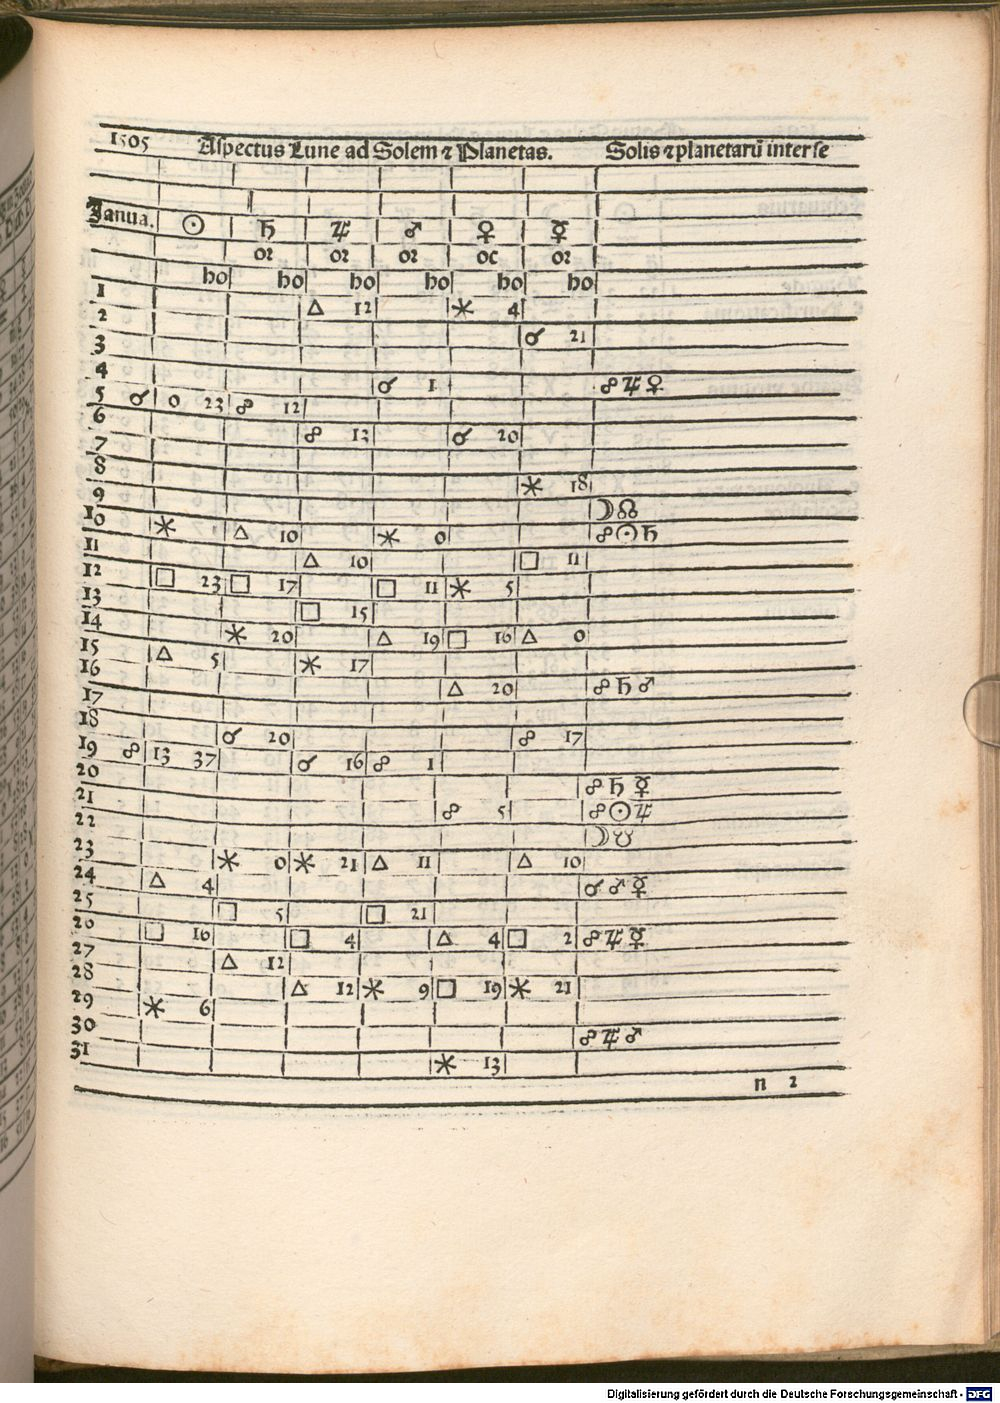 1505 Aspectus Lune ad Solem ⁊ Planetas. Solis ⁊ planetarū inter se
Janua. ☉ ♄ ♃ ♂ ♀ ☿
or or or oc or
ho ho ho ho ho ho
1
2 △ 12 ✶ 4
3 ☌ 21
4
5 ☌ 1 ☍ ♃ ♀
☌ 0 23 ☍ 12
6
7 ☍ 12 ☌ 20
8
9 ✶ 18
☽ ☊
10 ✶ △ 10 ✶ 0 ☍ ☉ ♄
11 △ 10 □ 11
12 □ 23 □ 17 □ 11 ✶ 5
13 □ 15
14 ✶ 20 △ 19 □ 16 △ 0
15 △ 5 ✶ 17
16 △ 20 ☍ ♄ ♂
17
18 ☌ 20 ☍ 17
19 ☍ 13 37 ☌ 16 ☍ 1
20 ☍ ♄ ☿
21 ☍ 5 ☍ ☉ ♃
22 ☽ ☋
23 ✶ 0 ✶ 21 △ 11 △ 10
24 △ 4 ☌ ♂ ☿
25 □ 5 □ 21
26 □ 16 □ 4 △ 4 □ 2 ☍ ♃ ☿
27 △ 12
28 △ 12 ✶ 9 □ 19 ✶ 21
29 ✶ 6
30 ☍ ♃ ♂
31 ✶ 13
n 2
Digitalisierung gefördert durch die Deutsche Forschungsgemeinschaft - DFG